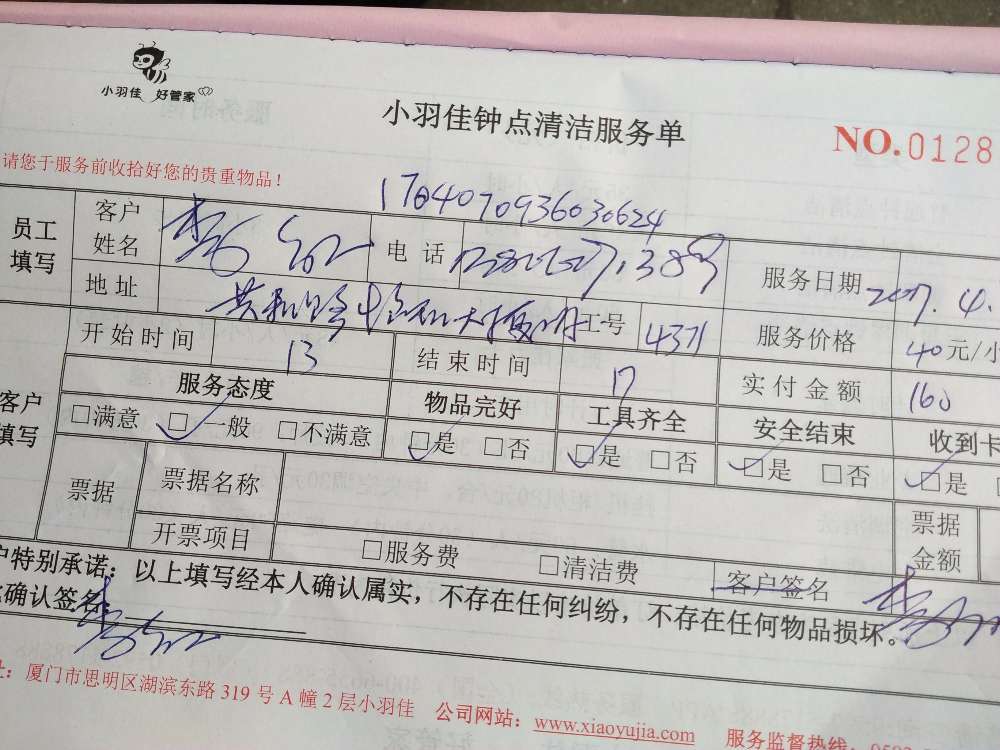 小羽佳 好管家
小羽佳钟点清洁服务单
NO.0128
请您于服务前收拾好您的贵重物品!
1704070936030624
员工填写 客户姓名 电话 服务日期 2017.4.
地址 工号 4371 服务价格 40元/小
开始时间 13 结束时间 17 实付金额 160
客户填写 服务态度 物品完好 工具齐全 安全结束 收到卡
□满意 □一般 □不满意 □是 □否 □是 □否 □是 □否 □是
票据 票据名称 票据金额
开票项目 □服务费 □清洁费 客户签名
户特别承诺:以上填写经本人确认属实,不存在任何纠纷,不存在任何物品损坏。
确认签名
址:厦门市思明区湖滨东路319号A幢2层小羽佳 公司网站:www.xiaoyujia.com 服务监督热线:059